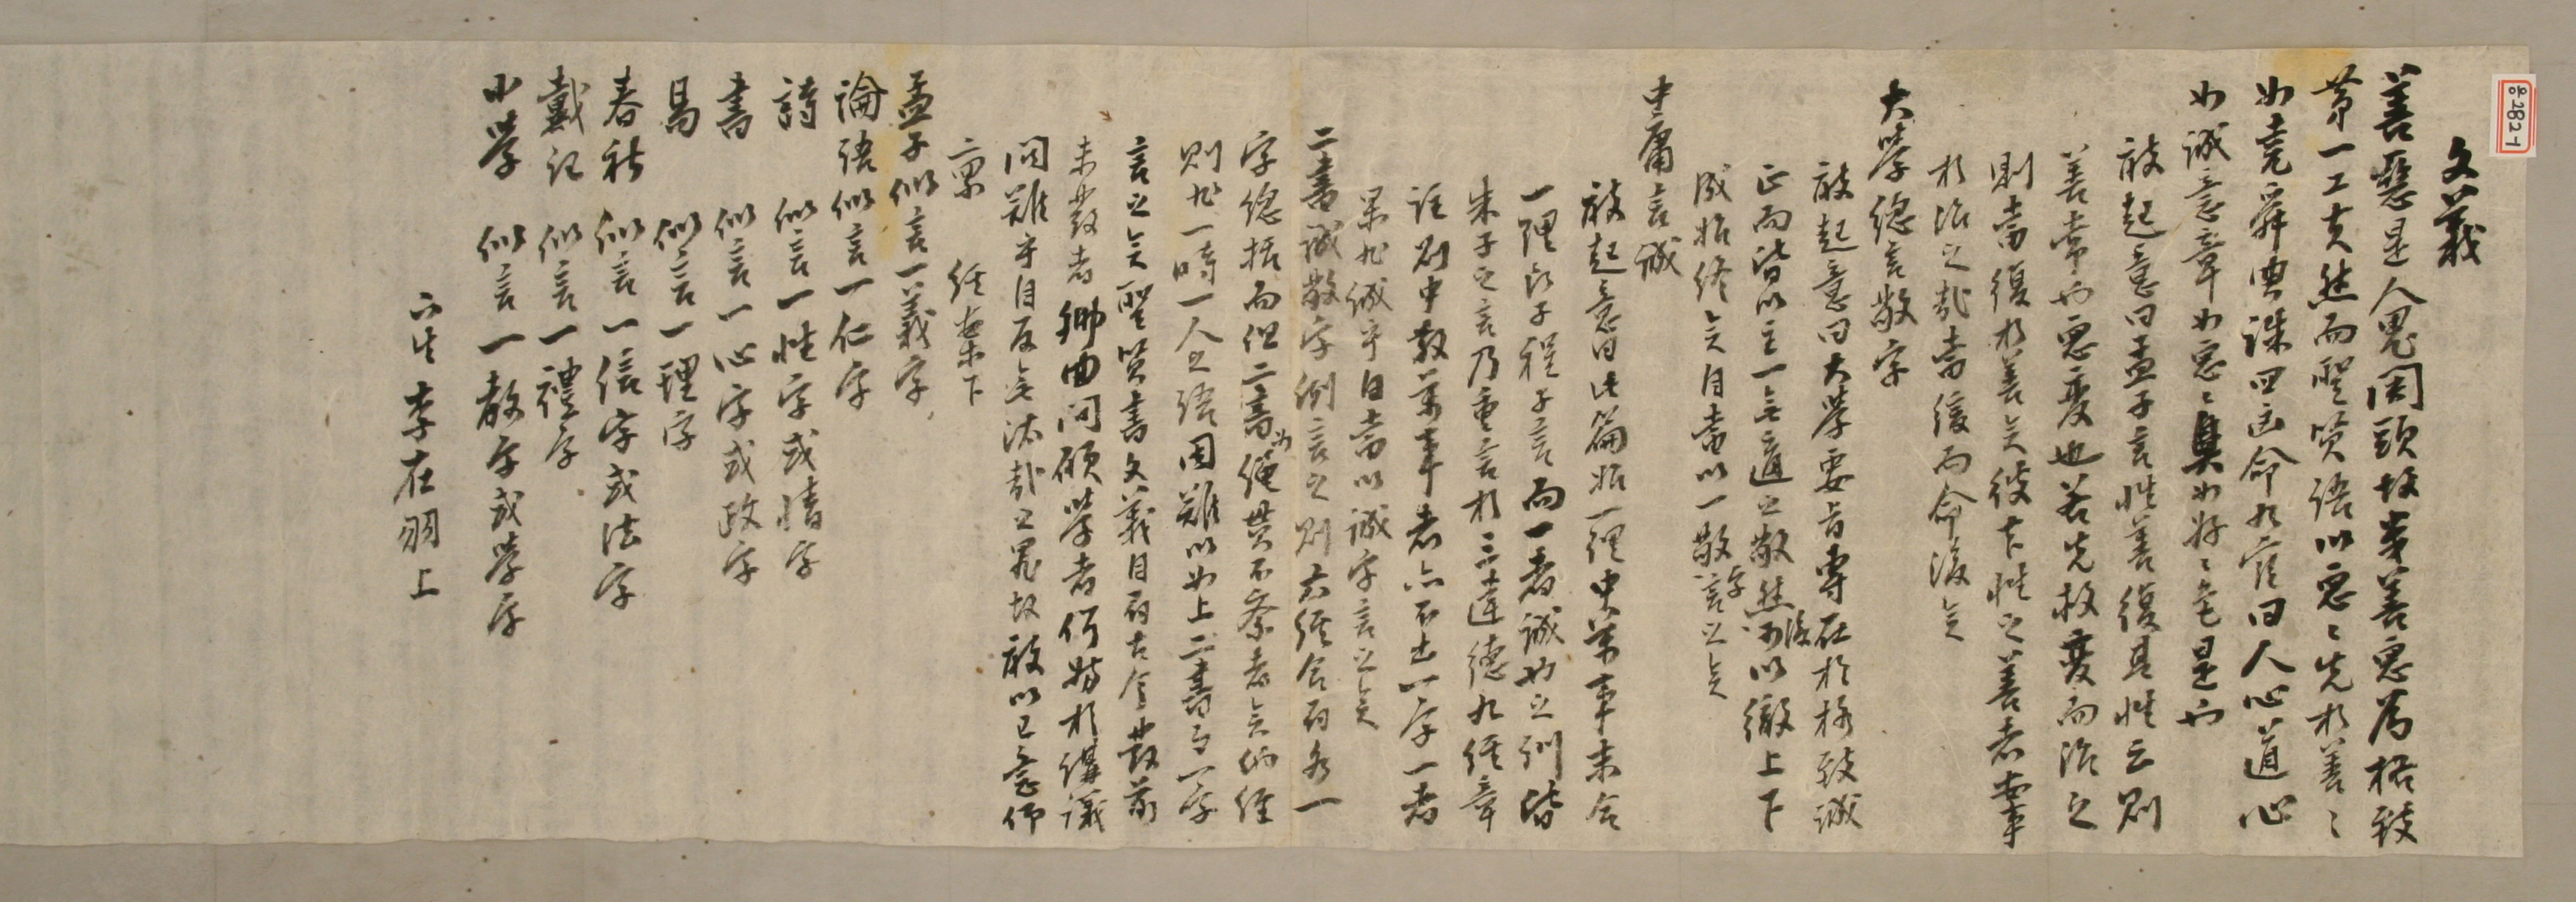 文義
善惡是人鬼関頭故曰善惡爲格致
第一工夫然而聖賢語以惡〻先於善〻
如堯舜典誅四凶命九官曰人心道心
如誠意章如惡〻臭如好〻色是也
敢起意曰孟子言性善復其性云則
善常也惡變也若先救變而治之
則當復於善矣彼古性之善者寧
於治之哉當後而命後矣
大學總言敬字
敢起意曰大學要旨專在於格致誠
正而皆以主一無適之敬字然後可以徹上下
成始終矣自當以一敬言之矣
中庸言誠
敢起意曰此篇始一理中萬事末合
一理乃子程子言而一者誠也之訓皆
朱子之言乃重言於三達德九經章
註則中散萬事者亦不出一字一者
果非誠乎自當以誠字言之矣
二書誠敬字例言之則六經合有各一
字總括而但二書如繩貫不紊者矣他經
則非一時一人之語固難以如上二書之一字
言之矣聖賢書文義自有古今發前
未發者鄉曲間願學者何特於講議
問難乎自反無法哉之罪故敢以己意仰
稟 經案下
孟子似言一義字
論語似言一仁字
詩 似言一性字或情字
書 似言一心字或政字
易 似言一理字
春秋 似言一信字或法字
戴記 似言一禮字
小學 似言一敎字或學字
下生李在羽上
은282-1